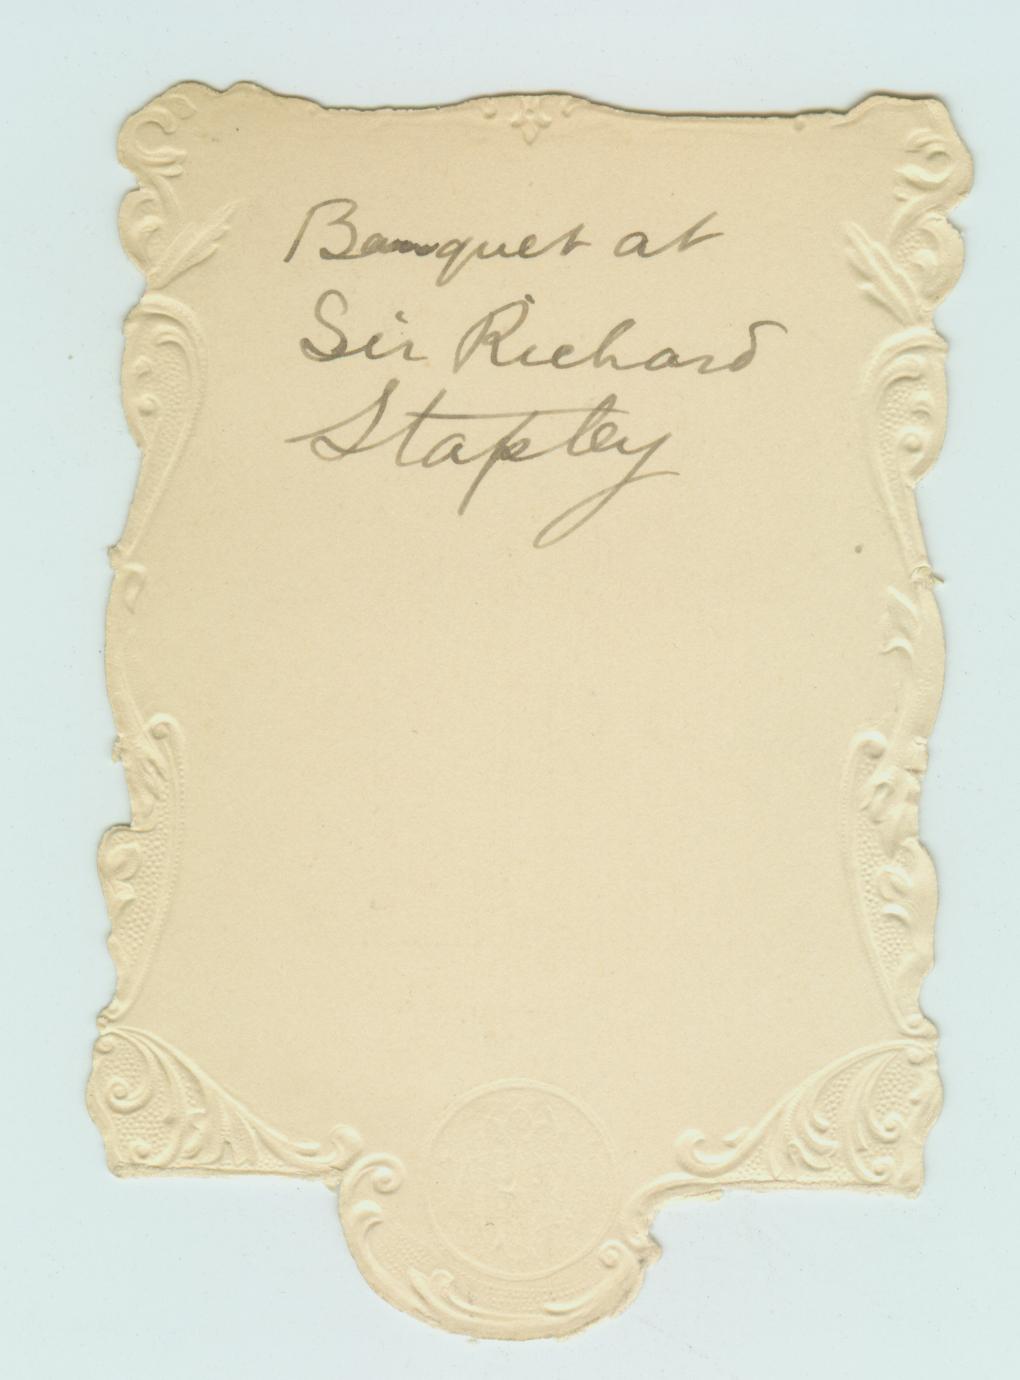 Banquet at
Sir Richard
Stapley